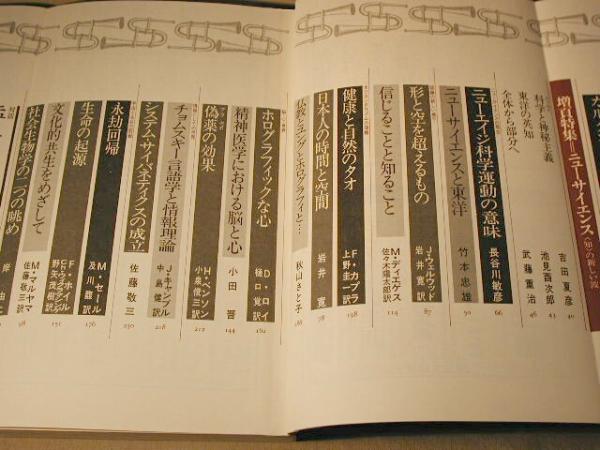 増頁特集＝ニューサイエンス
〈知〉の新しい波
吉田夏彦 40
科学と神秘主義
池見酉次郎 43
東洋の英知
武藤重治 46
全体から部分へ
ニューエイジ科学運動の意味
長谷川敏彦 66
ニューサイエンスと東洋
竹本忠雄 50
形と空を超えるもの
J・ウェルウッド
岩井寛訳 87
信じることと知ること
M・ディエゲス
佐々木陽太郎訳 114
健康と自然のタオ
F・カプラ
上野圭一訳
日本人の時間と空間
岩井寛 78
仏教とユングとホログラフィと…
秋山さと子
ホログラフィックな心
D・ロイ
樋口覚訳 162
精神医学における脳と心
小田晋 144
偽薬の効果
H・ベンソン
小泉俊三訳 212
チョムスキー言語学と情報理論
J・キャンブル
中島健訳 218
システムサイバネティクスの成立
佐藤敬三 230
永劫回帰
M・セール
及川馥訳 176
生命の起源
F・ホイル
Ch・ウィックラマシンジ
野矢茂樹訳 151
文化的共生をめざして
M・マルヤマ
佐藤敬三訳 98
社会生物学の二つの眺め
対談